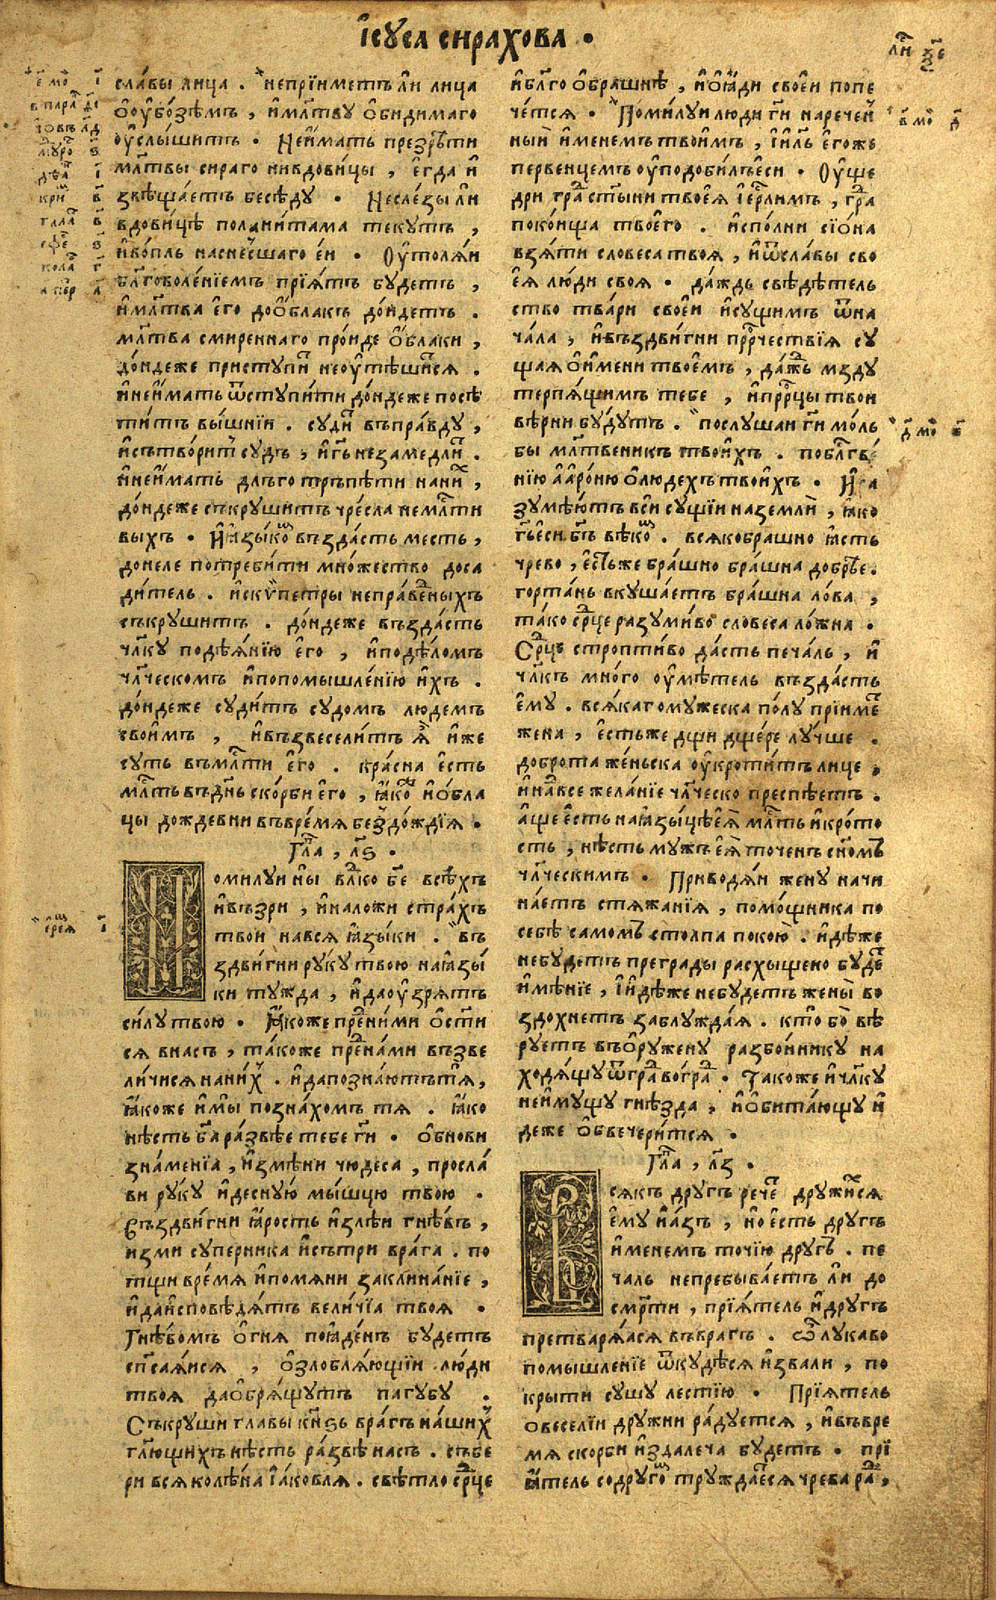 і҆сꙋса сирахова •
сла́вы лица . непрїиметъ ли лица
ѡ҆ оу҆бо́зѣмъ , и҆ мл҃твꙋ ѡ҆бидимаго
оу҆слы́шитъ • Неи҆мать презрѣти
мл҃твы сираго ни вдови́цы , є҆гда и҆
звѣща́етъ бесѣдꙋ • Не сле́зы ли
вдови́цѣ по лани́тама текꙋтъ ,
и҆ во́пль на снесшаго є҆и • Оу҆толѧ́и
бл҃говоле́нїемъ прїѧ́тъ бꙋдетъ ,
и҆ мл҃тва є҆го до ѡ҆́блакъ до́идетъ .
мл҃тва смиреннаго про́иде ѡ҆́блаки ,
до́ндеже пристꙋпи́ не оу҆тѣши́тсѧ .
и҆ неи҆мать ѿстꙋпи́ти до́ндеже посѣ
ти́тъ вы́шнїи . сꙋди́ въ пра́вдꙋ ,
и҆ сътво́ритъ сꙋдъ , и҆ гь҃ не заме́длитъ .
и҆ неи҆мать длъго трьпѣти на ни́х ,
до́ндеже съкрꙋшитъ чре́сла неми́лти
выхъ • И҆ ꙗ҆зы́комъ въздасть месть ,
донеле потреби́ти мно́жество доса
дитель . и҆ скѵпетры непра́веныхъ
съкрꙋшитъ . до́ндеже въздасть
чл҃кꙋ по дѣѧ́нїю є҆го , и҆ по дѣломъ
чл҃ческомъ и҆ по помышле́нїю и҆хъ .
до́ндеже сꙋди́тъ сꙋдомъ людемъ
свои҆мъ , и҆ възвесели́тъ ѧ҆̀ и҆же
сꙋть въ мл҃ти є҆го . кра́сна є҆сть
мл҃ть въ дн҃ь ско́рби є҆го , ꙗ҆ко и҆ ѡ҆бла
цы дождевни въ вре́мѧ бездо́ждїѧ •
Гла҃ , л҃ѕ •
Помилꙋи ны̀ влк҃о бж҃е всѣхъ
и҆ въ́зри , и҆ наложи стра́хъ
твои на всѧ ꙗ҆зы́ки . въ
здви́гни рꙋкꙋ твою на ꙗ҆зы́
ки тꙋжда , и҆ да оу҆́зрѧтъ
си́лꙋ твою • Ꙗ҆коже пре́д ними ѡ҆ст҃и
сѧ в насъ , та́коже пре́д нами възве
ли́чисѧ на ни́х . и҆ да позна́ютъ тѧ̀ ,
ꙗ҆коже и҆ мы̀ позна́хомъ тѧ . ꙗ҆ко
нѣсть бг҃а ра́звѣе тебе гд҃и • ѡ҆бнови
зна́менїа , и҆змѣни чюдеса , просла́
ви рꙋкꙋ и҆ деснꙋю мы́шцꙋ твою •
Въздви́гни ꙗ҆рость и҆злѣи гнѣвъ ,
изми сꙋперника и҆ сътри врага . по
тщи вре́мѧ и҆ помѧни заклина́нїе ,
и҆ да и҆сповѣдѧтъ вели́чїа твоѧ •
Гнѣвомъ ѻ҆́гнѧ поꙗ҆де́нъ бꙋдетъ
сп҃саѧйсѧ , ѡ҆злоблѧ́ющїи лю́ди
твоѧ да ѡ҆брѧ́щꙋтъ па́гꙋбꙋ .
Съкрꙋши главы кн҃ѕь вра́гъ на́ших
гл҃ющихъ нѣсть ра́звѣ насъ . събе
ри всѧ колѣна І҆а́ковлѧ . свѣтло ср҃це
и҆ бл҃го ѡ҆ бра́шнѣ , и҆ ꙗ҆́ди своеи попе
че́тсѧ • Помилꙋи люди гд҃и наречен
ныѝ и҆менемъ твои́мъ , і҆и҃лѧ є҆гоже
первенцемъ оу҆подо́билъ єси • Оу҆ще
дри гра́д ст҃ы́ни твоеѧ̀ І҆ер҃лимъ , гра́д
поко́ища твоего̀ . и҆спо́лни сїѡ́на
взѧ́ти словеса твоѧ , и҆ ѿ сла́вы сво
еѧ̀ лю́ди своѧ • да́ждь свѣдѣтель
ство тва́ри своеи҆ и҆сꙋщимъ ѿ на
ча́ла , и҆ въздви́гни прр҃чествїѧ сꙋ
щаѧ ѡ҆ и҆мени твое́мъ , да́жь мздꙋ
терпѧ́щимъ тебе , и҆ прр҃цы твои
вѣрни бꙋ́дꙋтъ . послꙋшаи гд҃и мо́ль
бы мл҃твеникъ твои́хъ . по бл҃гве
нїю а҆аро́ню ѡ҆ людехъ твои́хъ • И҆ ра
зꙋмѣ́ютъ вси сꙋщїи на земли̑ , ꙗ҆ко
гь҃ єси бг҃ъ вѣкомъ . всѧко брашно ꙗ҆сть
чрево , є҆сть же бра́шно бра́шна добрѣе .
горта́нь вкꙋша́етъ бра́шна ло́ва ,
та́ко ср҃це разꙋми́во словеса ло́жна .
Ср҃це стропти́во да́сть печа́ль , и҆
чл҃къ мно́го оу҆мѣтель въздасть
є҆мꙋ . всѧ́каго мꙋжеска по́лꙋ прїимет
жена , є҆сть же дщи дще́ре лꙋ́чше .
доброта же́ньска оу҆кроти́тъ лице ,
и҆ на́д все жела́нїе чл҃ческо преспѣетъ .
А҆ще є҆сть на ꙗ҆зы́цѣ є҆ѧ̀ мл҃ть и҆ кро́то
сть , нѣсть мꙋжъ є҆ѧ̀ точенъ сн҃омъ
чл҃ческимъ • Приводѧ́и женꙋ начи
на́етъ стѧжа́нїѧ , помо́щника по
себѣ̀ самомꙋ̀ столпа поко́ю . и҆дѣже
не бꙋдетъ прегра́ды расхы́щено бꙋдет
и҆мѣ́нїе , і҆ и҆дѣже не бꙋдетъ жены̀ во
здохнетъ заблꙋжда́ѧ . кто̀ бо вѣ
рꙋетъ въѡ҆рꙋженꙋ разбо́йникꙋ на
ходѧ́щꙋ ѿ гра́да в гра́д • Такоже и҆ чл҃кꙋ
неи҆мꙋщꙋ гнѣзда , и҆ ѡ҆бита́ющꙋ и҆
деже ѡ҆бвечери́тсѧ •
Гла҃ , л҃з •
Всѧкъ дрꙋгъ рече́т дрꙋжи́сѧ
є҆мꙋ и҆ а҆́зъ , но є҆сть дрꙋгъ
и҆менемъ то́чїю дрꙋгъ . пе
чаль непребыва́етъ ли до
сме́рти , прїѧ́тель и҆ дрꙋгъ
претварѧ́ѧсѧ въ врагъ . Ѽ лꙋкаво
помышленїе ѿкꙋдꙋсѧ и҆звали , по
крыти сꙋшꙋ ле́стїю • Прїѧ́тель
о веселїи дрꙋжни ра́дꙋетсѧ , и҆ въ вре
мѧ скорби и҆здалеча бꙋдетъ . прї
ѧ́тель со дрꙋгомъ трꙋжда́етсѧ чрева ра́д ,